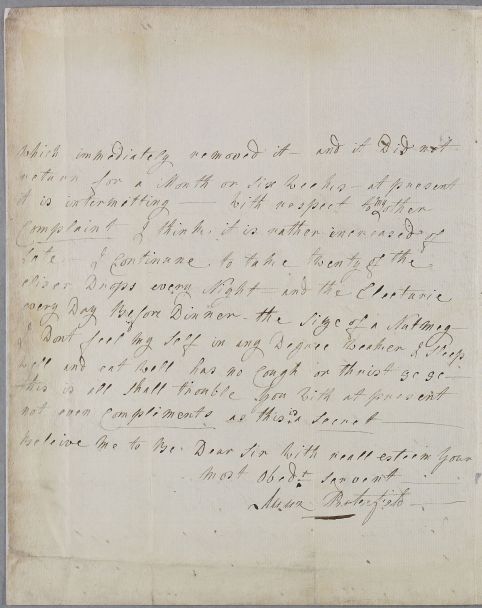 which immediately removed it - and it Did not
return for a Month or six Weekes - at present
it is intermitting - With respect to my other
Complaint I think it is rather increased of
late - I Continune to take twenty of the
Drops every Night - and the Electurie
every Day Before Dinner - the Size of a Nutmeg
I Dont feel my Self in any Degree Weaker I Sleep
Well and eat Well has no Cough or thirst &c &c -
this is all shall trouble you With at present
not even Compliments as this is a Secret
Beleive me to Be Dear Sir With reall esteem your
most Obedt. Servent
Susan